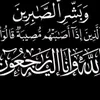 وَبَشِّرِ الصَّابِرِينَ
الَّذِينَ إِذَا أَصَابَتْهُمْ مُصِيبَةٌ قَالُوا
إِنَّا لِلَّهِ وَإِنَّا إِلَيْهِ رَاجِعُونَ